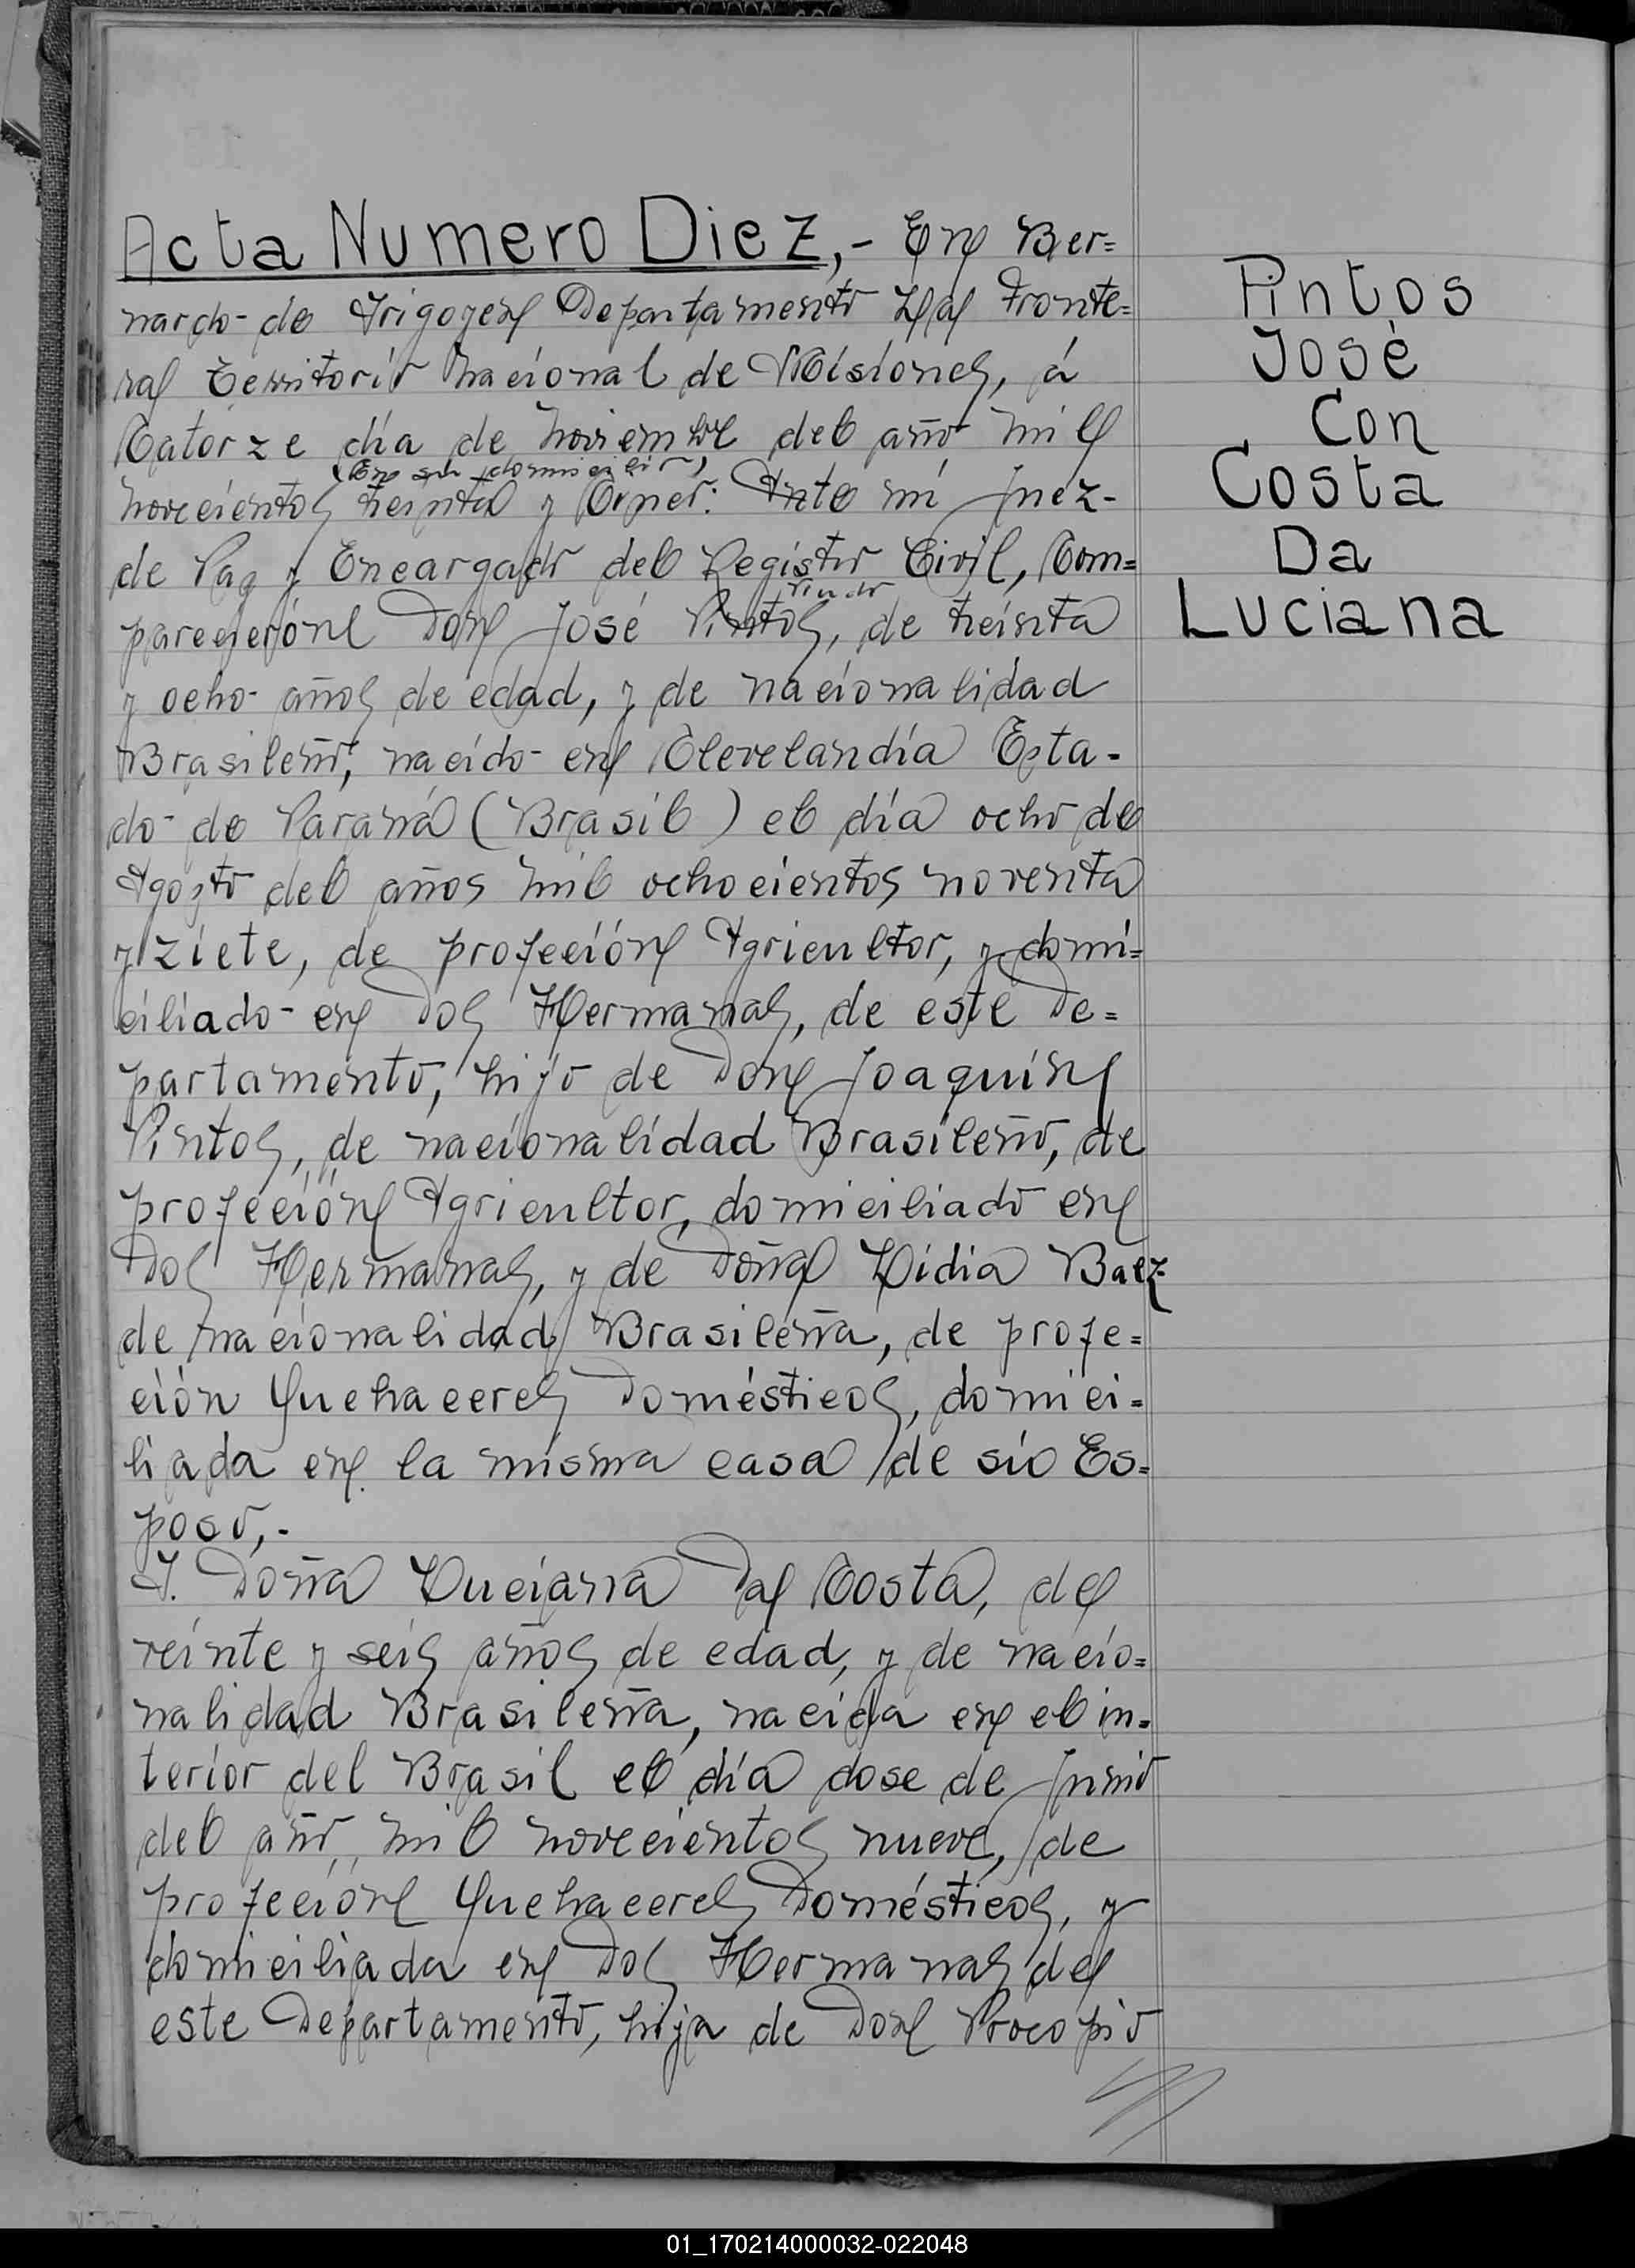 Acta Numero Diez,- En Ber=
nardo de Irigoyen Departamento La Fronte=
ra Territorio nacional de Misiones, á
Catorze dia de noviembre del año mil
(En su domicilio)
novecientos treinta y : Ante mi Juez-
de Paz y Encargado del Registro Civil, Com=
viudo
parecierón Don José Pintos, de treinta
y ocho años de edad, y de nacionalidad
Brasileño, nacido en Clevelandia Esta-
do de Paraná (Brasil) el día ocho de
Agosto del años mil ochocientos noventa
y ziete, de profeción Agricultor, y domi=
ciliado en Dos Hermanas, de este De=
partamento, hijo de Don Joaquin
Pintos, de nacionalidad Brasileño, de
profeción Agricultor, domiciliado en
Dos Hermanas, y de Doña Lidia Baez
de nacionalidad Brasileña, de profe=
ción Quehaceres Domésticos, domici=
liada en la misma casa de sio Es=
poso,.-
I. Doña Luciana Da Costa, de
veinte y seis años de edad, y de nacio=
nalidad Brasileña, nacida en el in=
terior del Brasil el día dose de Junio
del año, mil novecientos nueve, de
profeción Quehaceres Domésticos, y
domiciliada en Dos Hermanas de
este Departamento, hija de Don Procopio
Pintos
José
Con
Costa
Da
Luciana
01_170214000032-022048